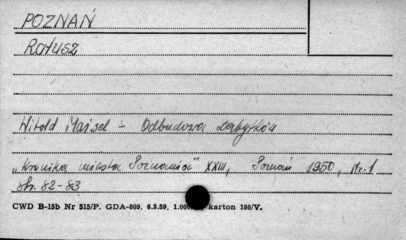 POZNAŃ
Ratusz
Witold Maisel - Odbudowa zabytków
„Kronika miasta Poznania" XXIII, Poznań 1950, Nr. 1
str. 82-83
CWD B-15b Nr 515/P. GDA-809. 6.3.59. 1.000 karton 180/V.